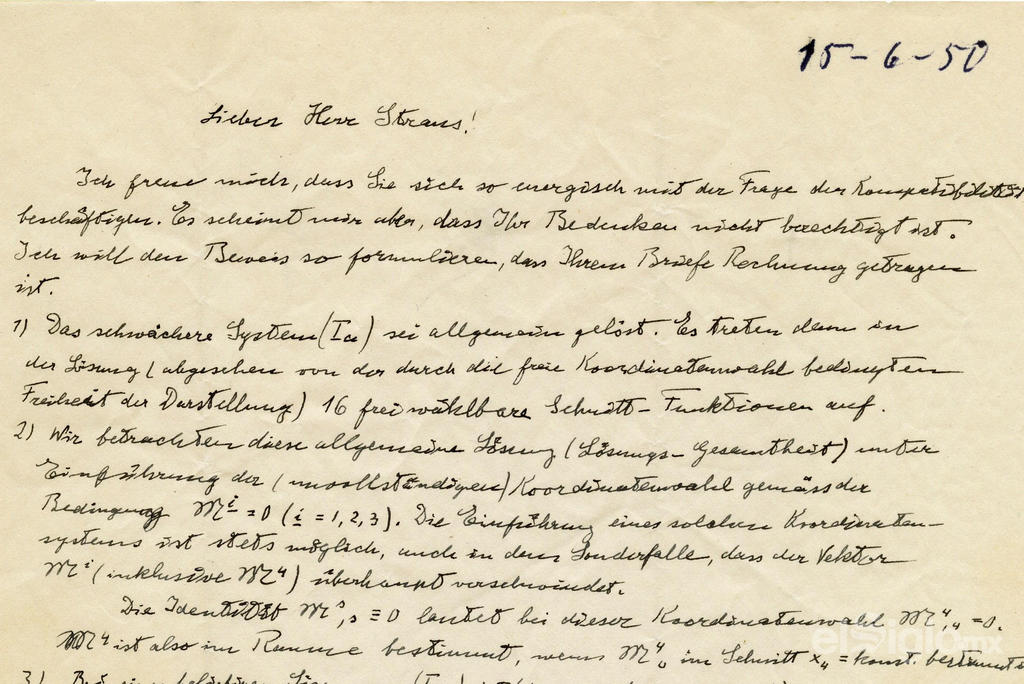 15-6-50
Lieber Herr Straus!
Ich freue mich, dass Sie sich so energisch mit der Frage der Kompatibilität
beschäftigen. Es scheint mir aber, dass Ihr Bedenken nicht berechtigt ist.
Ich will den Beweis so formulieren, dass Ihrem Briefe Rechnung getragen
ist.
1) Das schwächere System (Ia) sei allgemein gelöst. Es treten dann in
der Lösung (abgesehen von der durch die freie Koordinatenwahl bedingten
Freiheit der Darstellung) 16 frei wählbare Schnitt-Funktionen auf.
2) Wir betrachten diese allgemeine Lösung (Lösungs-Gesamtheit) unter
Einführung der (unvollständigen) Koordinatenwahl gemäss der
Bedingung 𝔐^i = 0 (i = 1, 2, 3). Die Einführung eines solchen Koordinaten-
systems ist stets möglich, auch in dem Sonderfalle, dass der Vektor
𝔐^i (inklusive 𝔐^4) überhaupt verschwindet.
Die Identität 𝔐^s,s ≡ 0 lautet bei dieser Koordinatenwahl 𝔐^4,4 = 0.
𝔐^4 ist also im Raume bestimmt, wenn 𝔐^4 im Schnitt x4 = konst. bestimmt
elsiglo.mx
3)